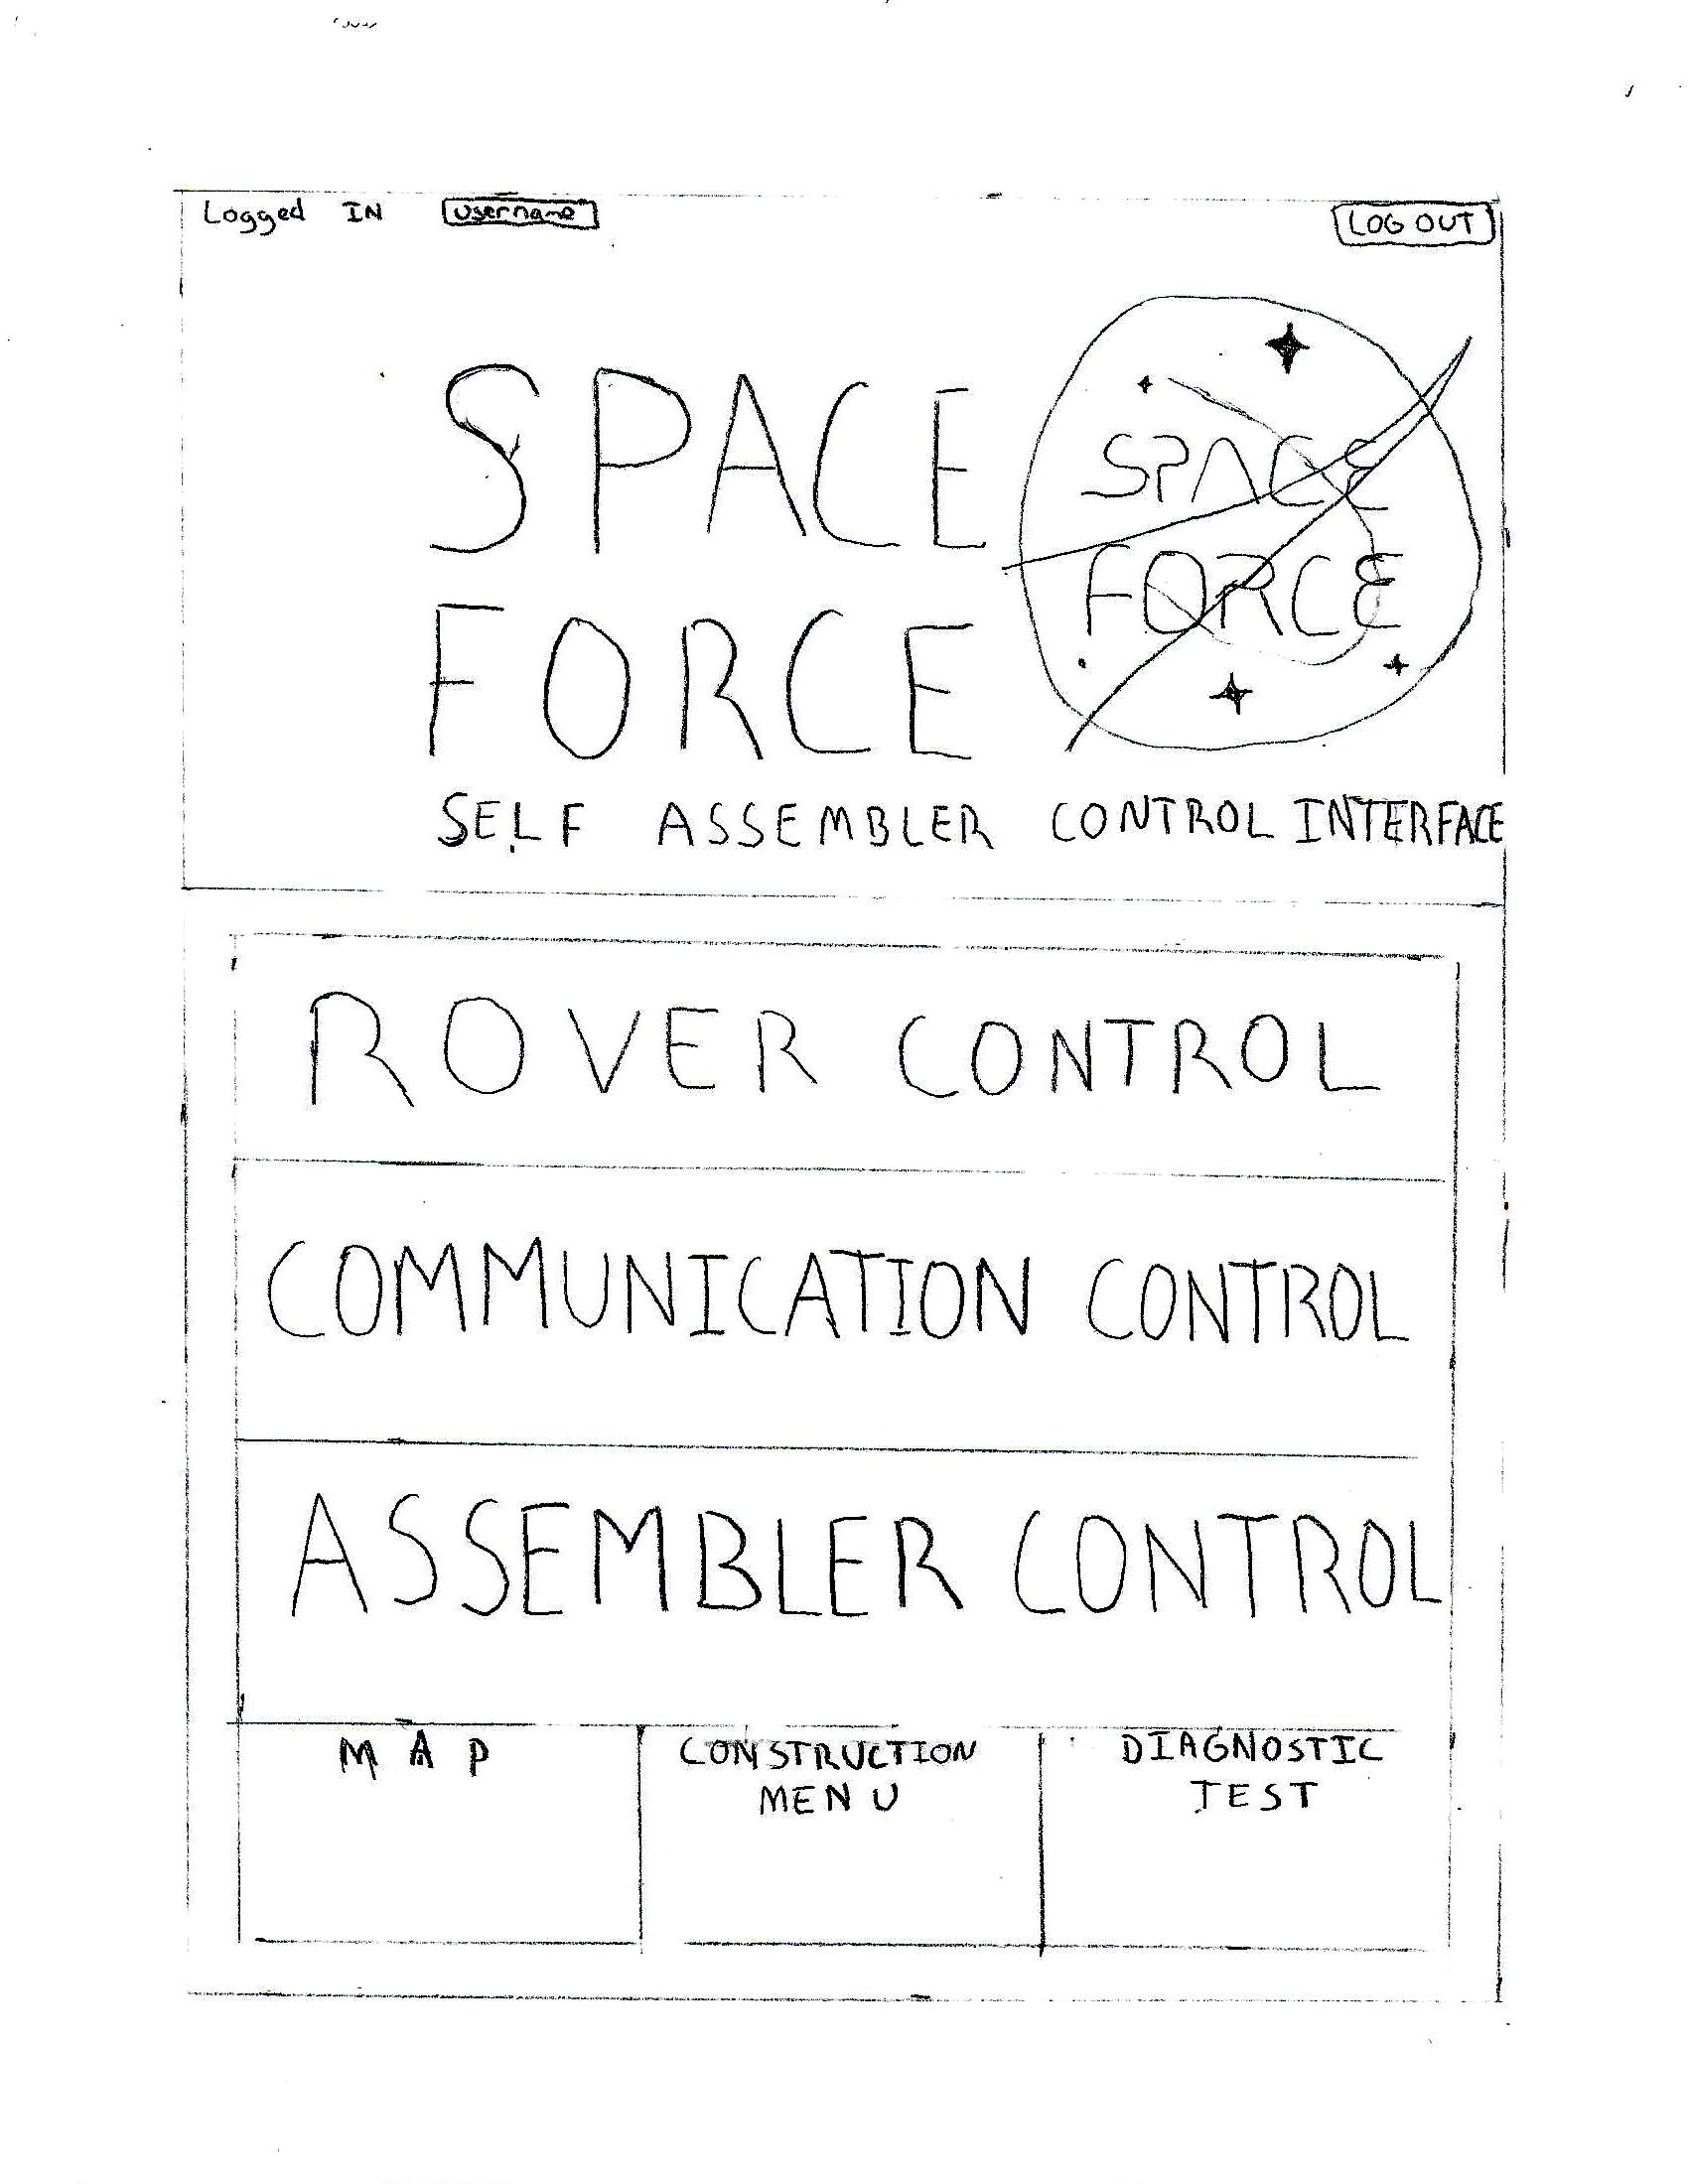 Logged IN username LOG OUT
SPACE
FORCE
SPACE
FORCE
SELF ASSEMBLER CONTROL INTERFACE
ROVER CONTROL
COMMUNICATION CONTROL
ASSEMBLER CONTROL
MAP
CONSTRUCTION
MENU
DIAGNOSTIC
TEST